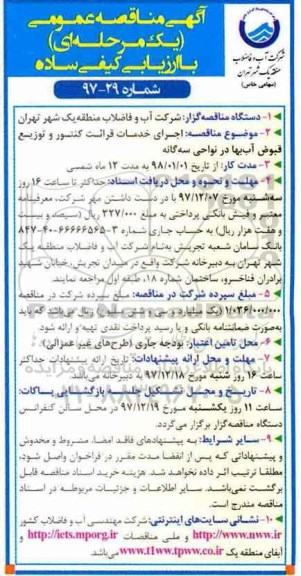 آگهی مناقصه عمومی
(یک مرحله‌ای)
با ارزیابی کیفی ساده
شرکت آب و فاضلاب
منطقه یک شهر تهران
(سهامی خاص)
شماره ۲۹-۹۷
۱- دستگاه مناقصه‌گزار: شرکت آب و فاضلاب منطقه یک شهر تهران
۲- موضوع مناقصه: اجرای خدمات قرائت کنتور و توزیع
قبوض آب‌بها در نواحی سه‌گانه
۳- مدت کار: از تاریخ ۹۸/۰۱/۰۱ به مدت ۱۲ ماه شمسی
۴- مهلت و نحوه و محل دریافت اسناد: حداکثر تا ساعت ۱۶ روز
سه‌شنبه مورخ ۹۷/۱۲/۰۷ با در دست داشتن مهر شرکت، معرفینامه
معتبر و فیش بانکی پرداختی به مبلغ ۳۲۷/۰۰۰ ریال (سیصد و بیست
و هفت هزار ریال) به حساب جاری شماره ۳-۶۶۶۶۶۵۶۳-۴۰-۸۴۷
بانک سامان شعبه تجریش به‌نام شرکت آب و فاضلاب منطقه یک
شهر تهران به دبیرخانه شرکت واقع در میدان تجریش، خیابان شهید
برادران فناخسرو، ساختمان شماره ۱۸، طبقه اول مراجعه نمایند.
۵- مبلغ سپرده شرکت در مناقصه: مبلغ سپرده شرکت در مناقصه
۱/۰۳۶/۰۰۰/۰۰۰ (یک میلیارد و سی و شش میلیون) ریال می‌باشد که باید
به‌صورت ضمانتنامه بانکی و یا رسید پرداخت نقدی تهیه و ارائه شود.
۶- محل تامین اعتبار: بودجه جاری (طرح‌های غیر عمرانی)
۷- مهلت و محل ارائه پیشنهادات: تاریخ ارائه پیشنهادات حداکثر
تا ساعت ۱۶ روز شنبه مورخ ۹۷/۱۲/۱۸ به دبیرخانه می‌باشد.
۸- تاریخ و محل تشکیل جلسه بازگشایی پاکات:
ساعت ۱۱ روز یکشنبه مورخ ۹۷/۱۲/۱۹ در محل سالن کنفرانس
دستگاه مناقصه‌گزار برگزار می‌گردد.
۹- سایر شرایط: به پیشنهادهای فاقد امضا، مشروط و مخدوش
و پیشنهاداتی که پس از انقضا مدت مقرر در فراخوان واصل شود،
مطلقا ترتیب اثر داده نخواهد شد. هزینه خرید اسناد مناقصه قابل
برگشت نمی‌باشد. سایر اطلاعات و جزئیات مربوطه در اسناد
مناقصه مندرج است.
۱۰- نشانی سایت‌های اینترنتی: شرکت مهندسی آب و فاضلاب کشور
http://www.nww.ir و ملی مناقصات http://iets.mporg.ir و
آبفای منطقه یک www.t1ww.tpww.co.ir